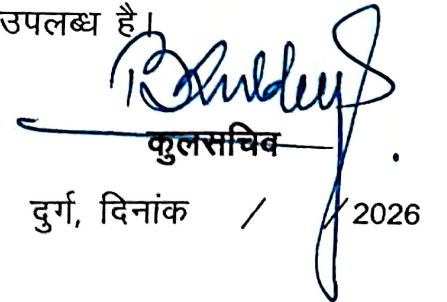 उपलब्ध है।
कुलसचिव
दुर्ग, दिनांक / / 2026